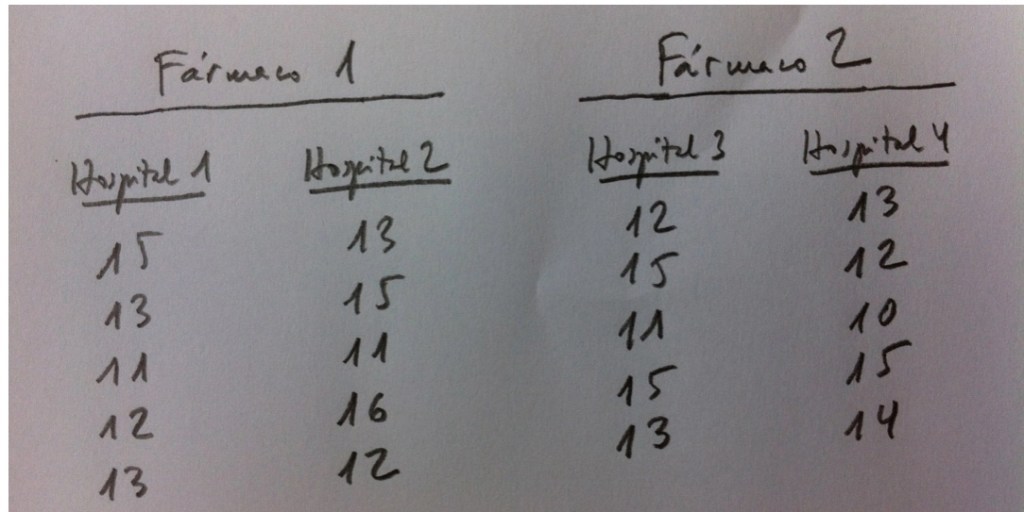 Fármaco 1 Fármaco 2
Hospital 1 Hospital 2 Hospital 3 Hospital 4
15 13 12 13
13 15 15 12
11 11 11 10
12 16 15 15
13 12 13 14